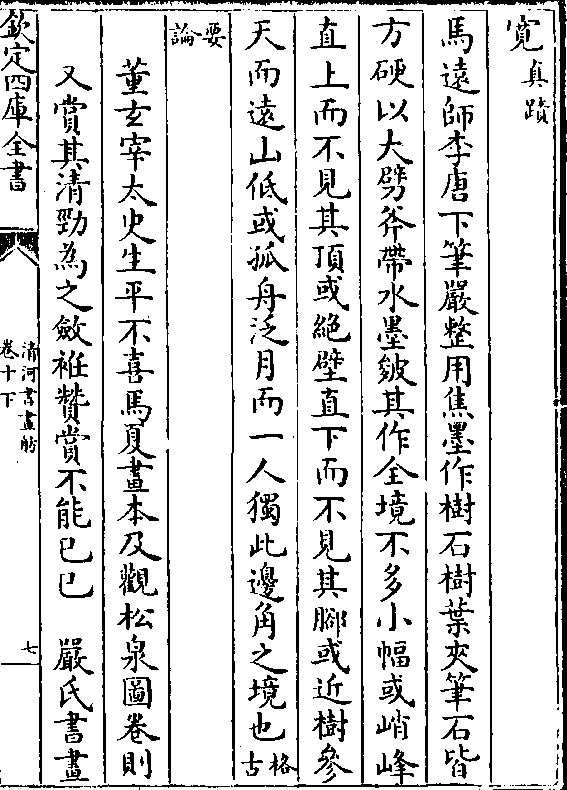 寛真蹟
馬遠師李唐下筆嚴整用焦墨作樹石樹葉夾筆石皆
方硬以大劈斧帶水墨皴其作全境不多小幅或峭峰
直上而不見其頂或絶壁直下而不見其腳或近樹參
天而遠山低或孤舟泛月而一人獨此邊角之境也格古
要論
董玄宰太史生平不喜馬夏畫本及觀松泉圖卷則
又賞其清勁為之斂袵贊賞不能已已　嚴氏書畫
欽定四庫全書
清河書畫舫
卷十下
七